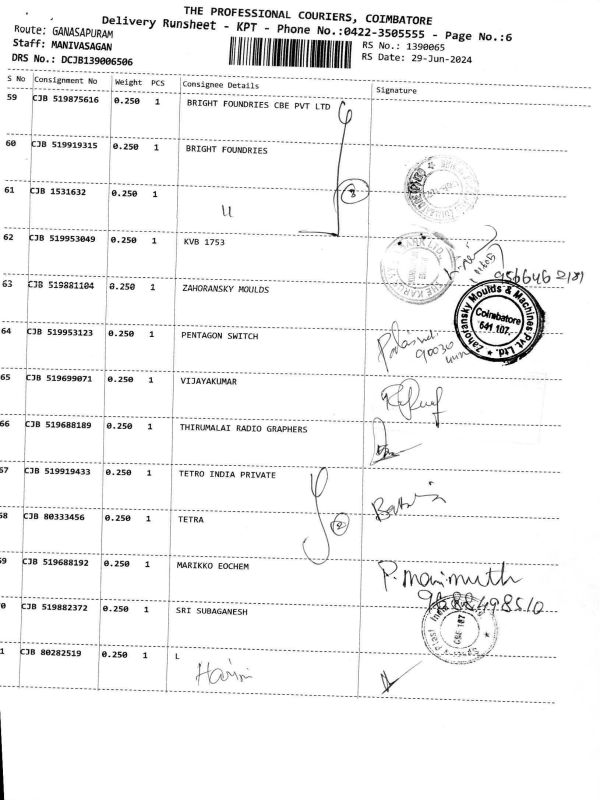 THE PROFESSIONAL COURIERS, COIMBATORE
Delivery Runsheet - KPT - Phone No.:0422-3505555 - Page No.:6
Route: GANASAPURAM
RS No.: 1390065
Staff: MANIVASAGAN
RS Date: 29-Jun-2024
DRS No.: DCJB139006506
S No Consignment No Weight PCS Consignee Details Signature
59 CJB 519875616 0.250 1 BRIGHT FOUNDRIES CBE PVT LTD
60 CJB 519919315 0.250 1 BRIGHT FOUNDRIES
61 CJB 1531632 0.250 1
62 CJB 519953049 0.250 1 KVB 1753
63 CJB 519881104 0.250 1 ZAHORANSKY MOULDS
Zahoransky Moulds & Machines Pvt. Ltd.
Coimbatore
641 107.
64 CJB 519953123 0.250 1 PENTAGON SWITCH
65 CJB 519699071 0.250 1 VIJAYAKUMAR
66 CJB 519688189 0.250 1 THIRUMALAI RADIO GRAPHERS
67 CJB 519919433 0.250 1 TETRO INDIA PRIVATE
68 CJB 80333456 0.250 1 TETRA
69 CJB 519688192 0.250 1 MARIKKO EOCHEM
P. Marimuth
0 CJB 519882372 0.250 1 SRI SUBAGANESH
1 CJB 80282519 0.250 1 L